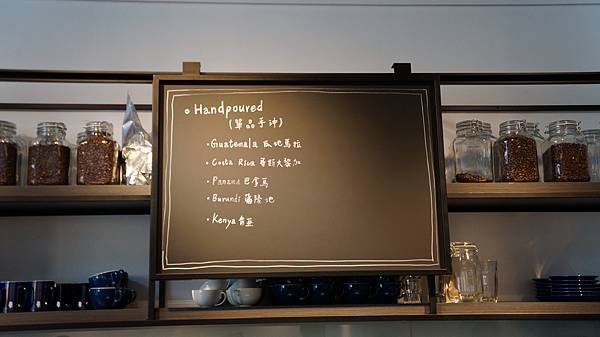 Handpoured
(單品手沖)
Guatemala 瓜地馬拉
Costa Rica 哥斯大黎加
Panama 巴拿馬
Burundi 蒲隆地
Kenya 肯亞